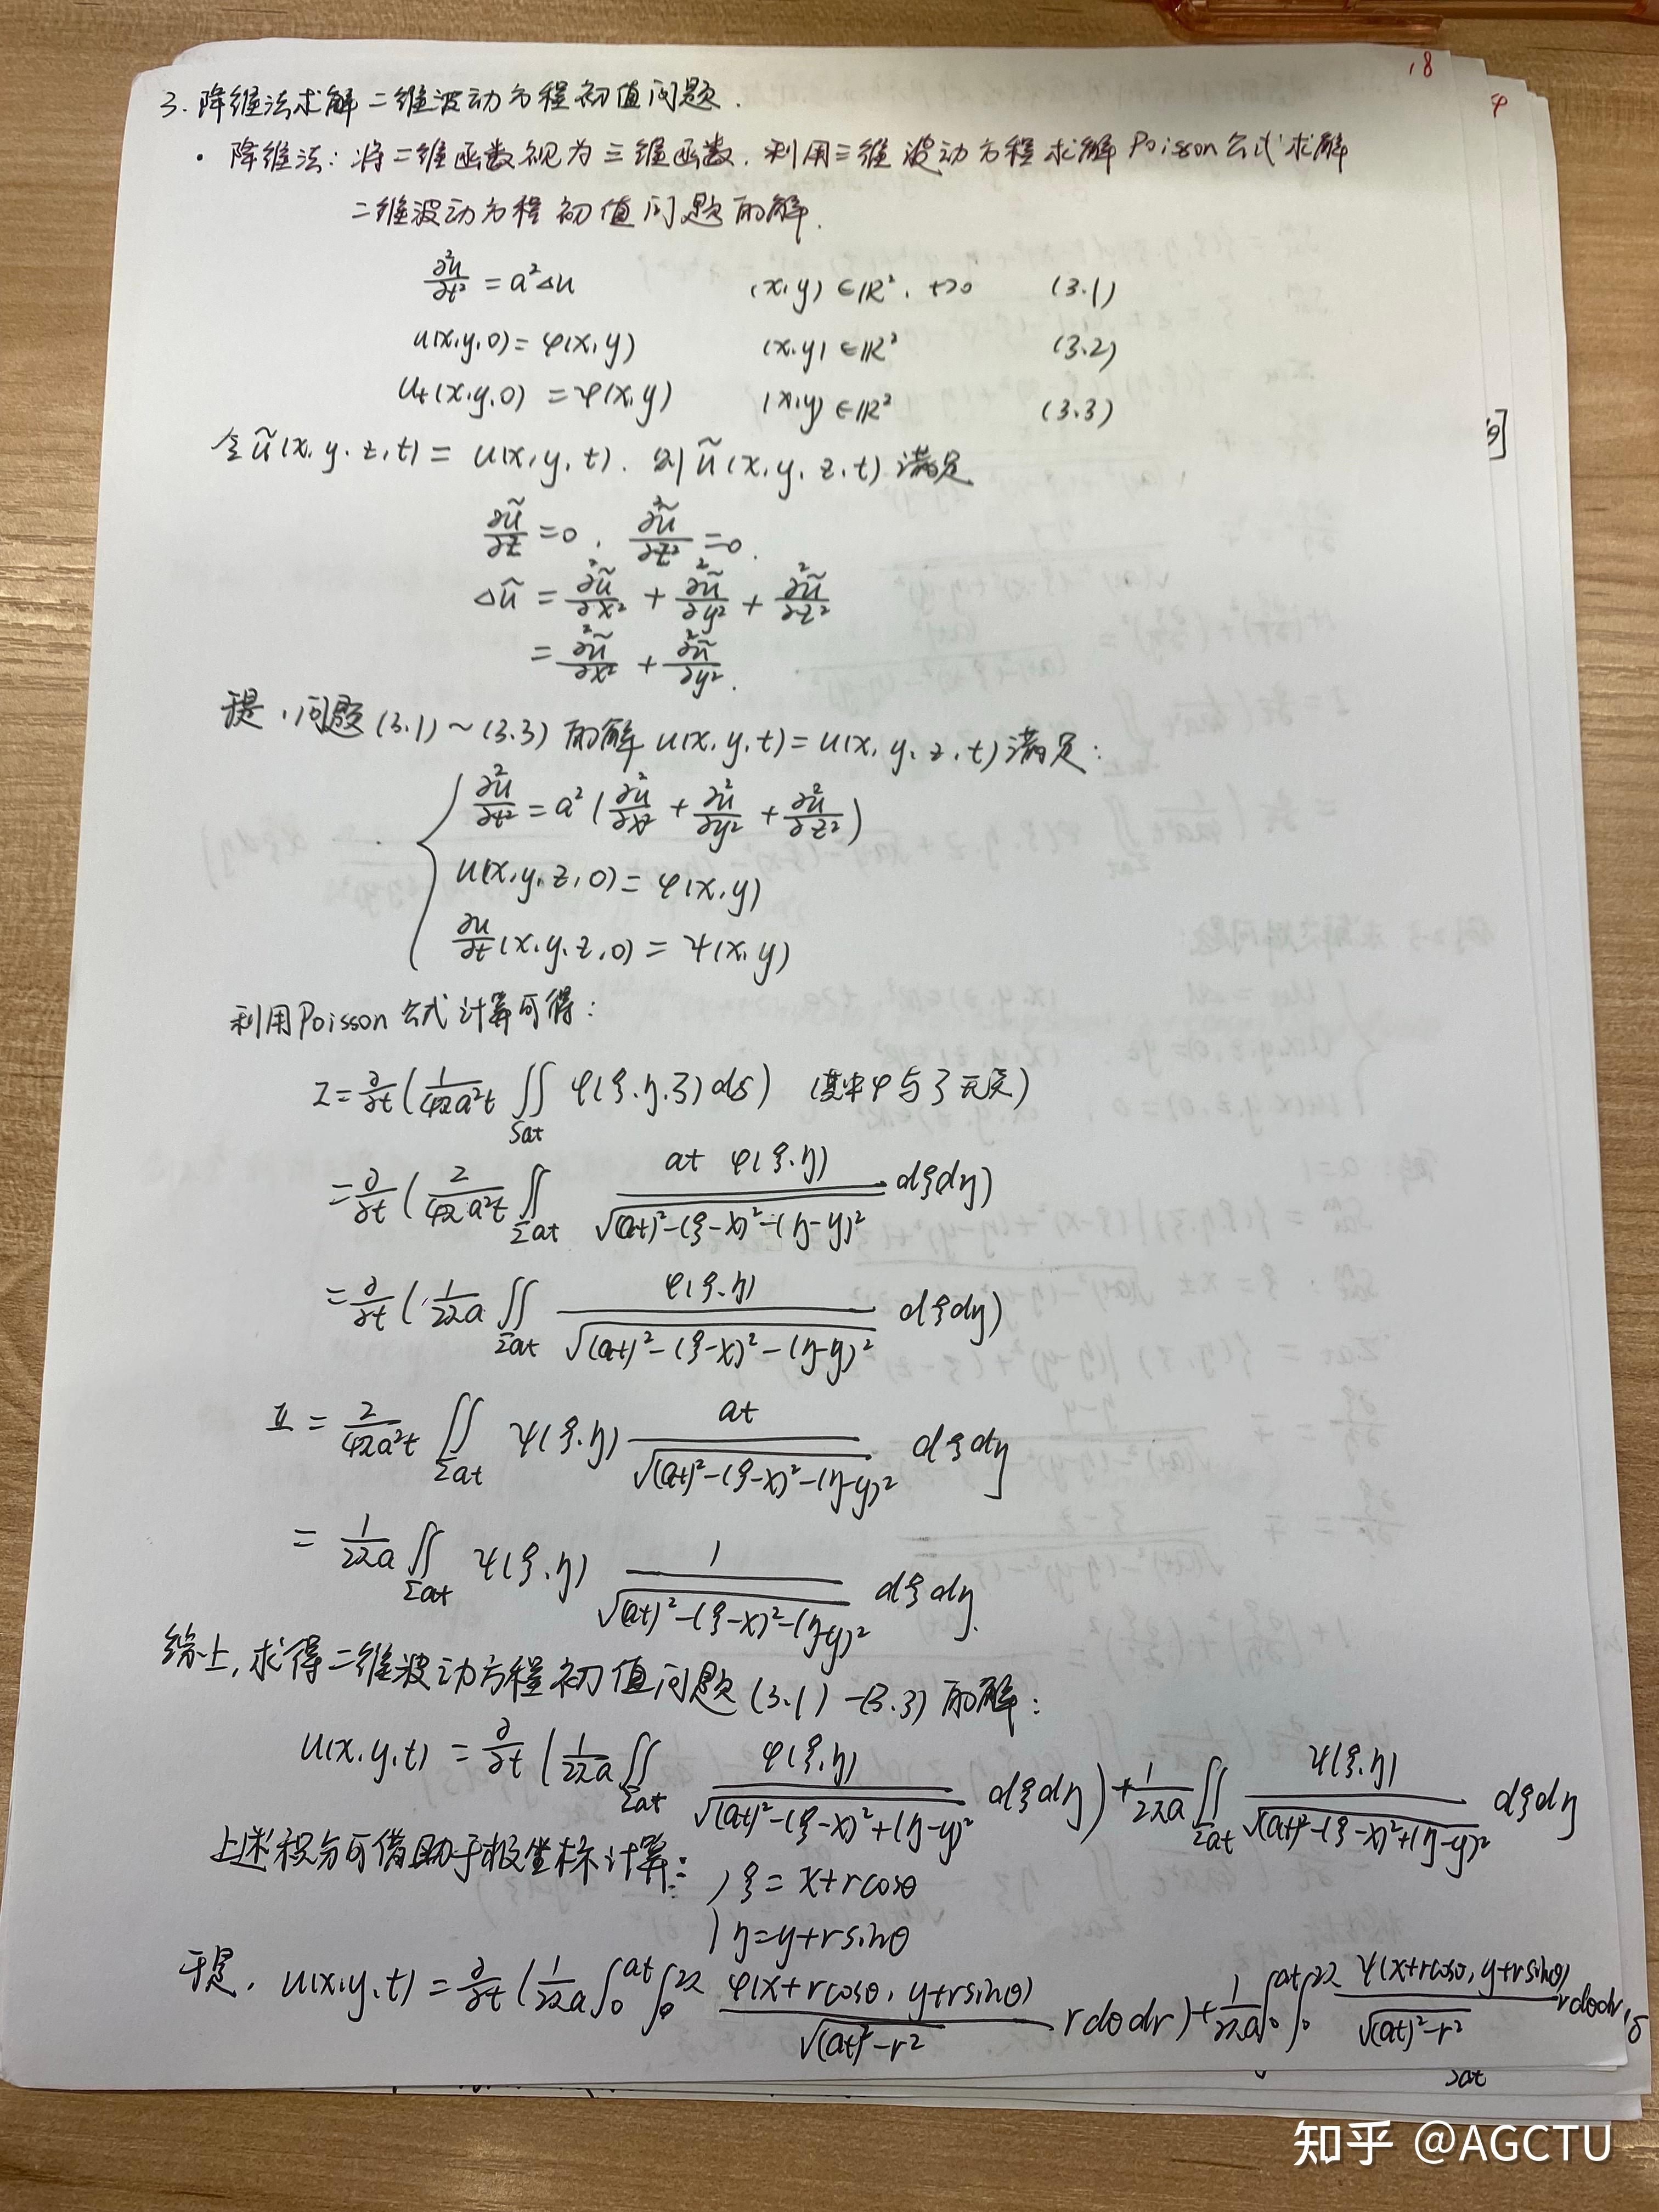 18
3. 降维法求解二维波动方程初值问题.
· 降维法: 将二维函数视为三维函数. 利用三维波动方程求解Poisson公式求解
二维波动方程初值问题的解.
∂²u/∂t² = a²Δu (x,y)∈ℝ², t>0 (3.1)
u(x,y,0) = φ(x,y) (x,y)∈ℝ² (3.2)
u_t(x,y,0) = φ(x,y) (x,y)∈ℝ² (3.3)
令ũ(x,y,z,t) = u(x,y,t). 则ũ(x,y,z,t)满足
∂ũ/∂z = 0, ∂²ũ/∂z² = 0.
Δũ = ∂²ũ/∂x² + ∂²ũ/∂y² + ∂²ũ/∂z²
= ∂²ũ/∂x² + ∂²ũ/∂y².
于是, 问题(3.1)~(3.3)的解u(x,y,t) = u(x,y,z,t)满足:
∂²u/∂t² = a²(∂²u/∂x² + ∂²u/∂y² + ∂²u/∂z²)
u(x,y,z,0) = φ(x,y)
∂u/∂t(x,y,z,0) = ψ(x,y)
利用Poisson公式计算可得:
I = ∂/∂t(1/(4πa²t) ∬_{Sat} φ(ξ,η,ζ)ds) (其中φ与ζ无关)
= ∂/∂t(2/(4πa²t) ∬_{Σat} at φ(ξ,η)/√((at)²-(ξ-x)²-(η-y)²) dξdη)
= ∂/∂t(1/(2πa) ∬_{Σat} φ(ξ,η)/√((at)²-(ξ-x)²-(η-y)²) dξdη)
II = 2/(4πa²t) ∬_{Σat} ψ(ξ,η) at/√((at)²-(ξ-x)²-(η-y)²) dξdη
= 1/(2πa) ∬_{Σat} ψ(ξ,η) 1/√((at)²-(ξ-x)²-(η-y)²) dξdη.
综上, 求得二维波动方程初值问题(3.1)-(3.3)的解:
u(x,y,t) = ∂/∂t(1/(2πa) ∬_{Σat} φ(ξ,η)/√((at)²-(ξ-x)²+(η-y)²) dξdη) + 1/(2πa) ∬_{Σat} ψ(ξ,η)/√((at)²-(ξ-x)²+(η-y)²) dξdη
上述积分可借助于极坐标计算: ξ = x+rcosθ
η = y+rsinθ
于是, u(x,y,t) = ∂/∂t(1/(2πa) ∫₀^{at} ∫₀^{2π} φ(x+rcosθ, y+rsinθ)/√((at)²-r²) rdθdr) + 1/(2πa) ∫₀^{at} ∫₀^{2π} ψ(x+rcosθ, y+rsinθ)/√((at)²-r²) rdθdr
Sat
知乎 @AGCTU